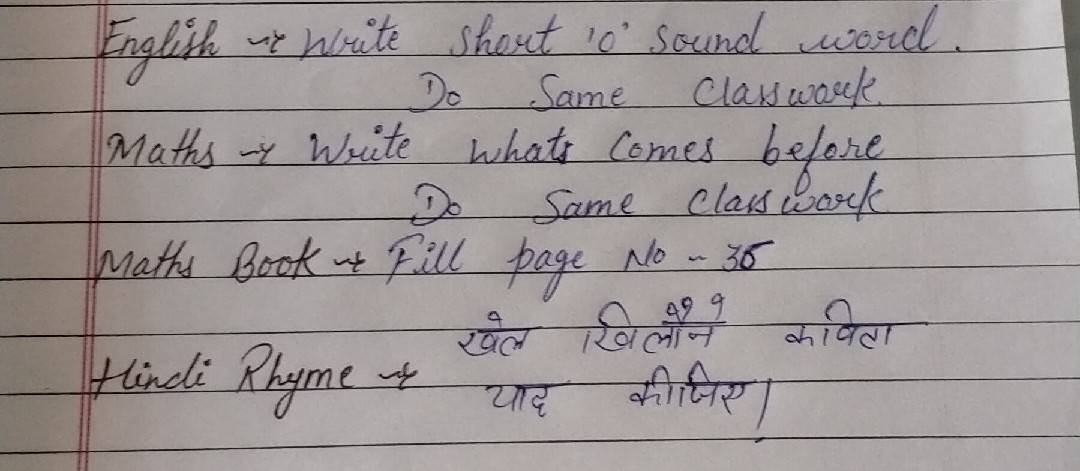 English → Write short 'o' sound word.
Do Same Classwork.
Maths → Write whats Comes before
Do Same Classwork
Maths Book → Fill page No - 35
खेल खिलौने कविता
Hindi Rhyme →
याद कीजिए।